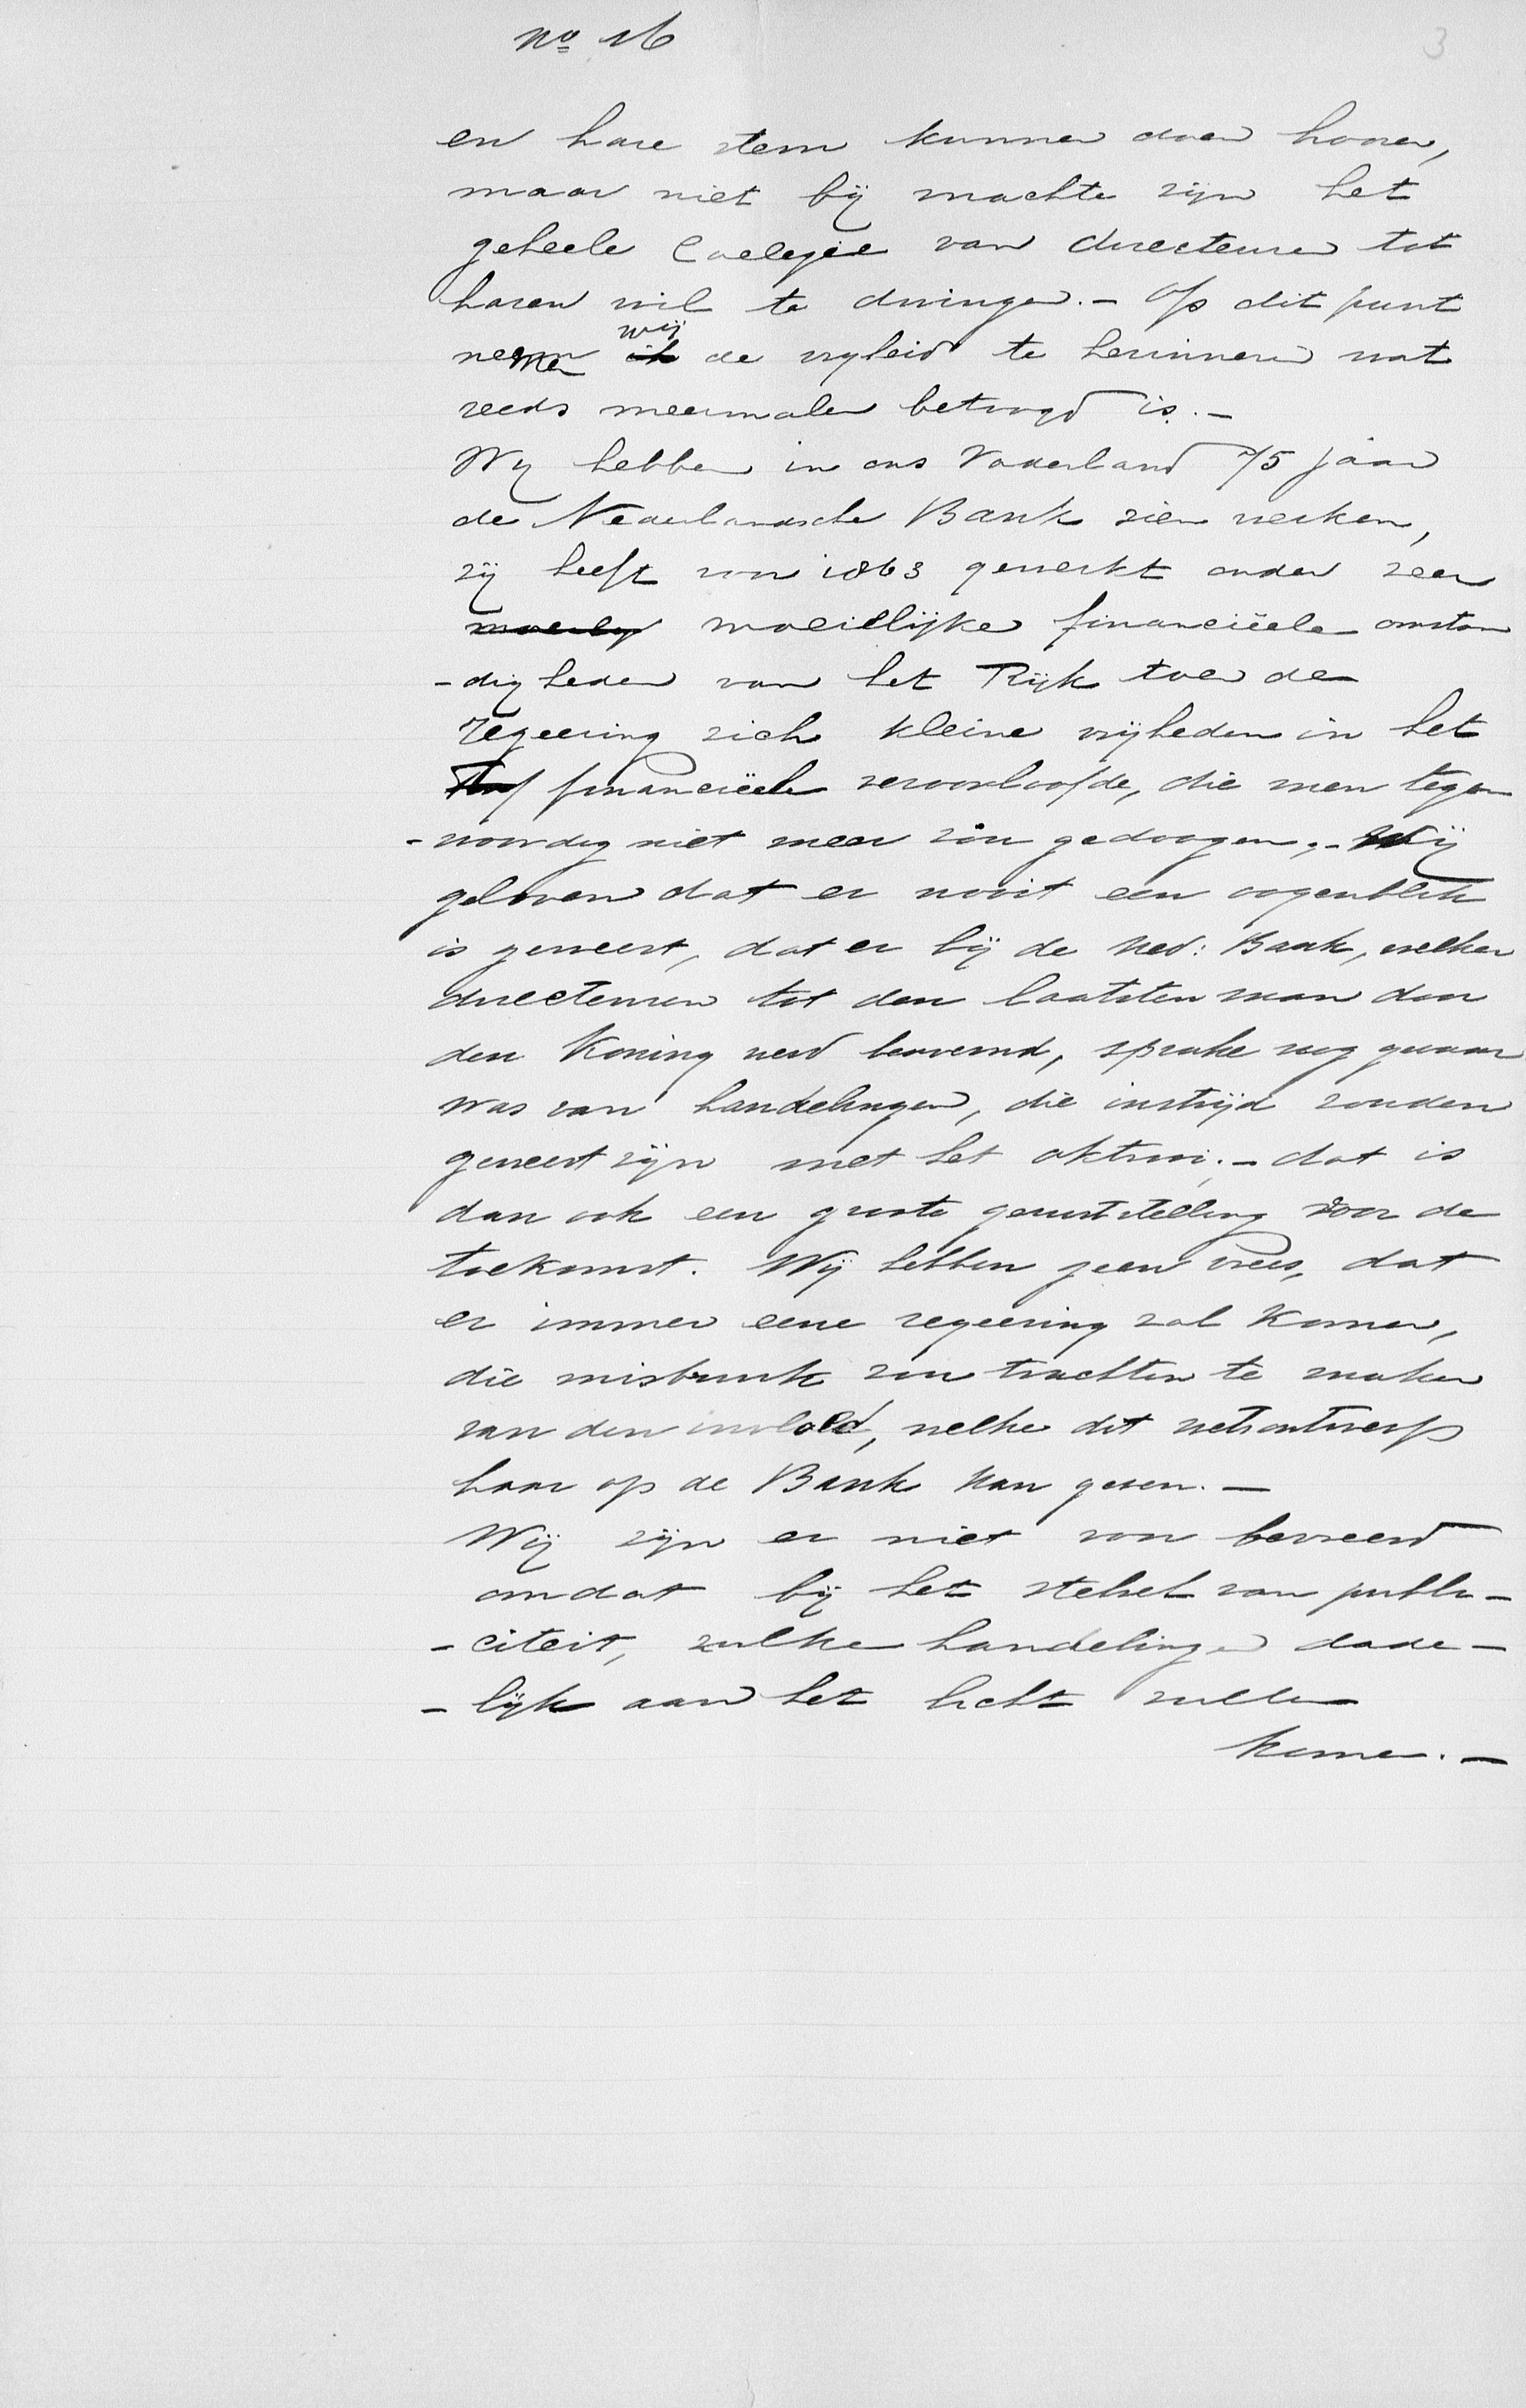 No 16
3
en hare stem kunnen doen hooren,
maar niet bij machte zijn het
geheele Collegie van directeuren tot
haren wil te dwingen. - Op dit punt
nemen wij de vryheid te herinneren wat
reeds meermalen betoogd is. -
Wy hebben in ons Vaderland 75 jaar
de Nederlandsche Bank zien werken,
zij heeft voor 1863 gewerkt onder zeer
moeielijke financiëele omstan
-digheden van het Rijk toen de
regeering zich kleine vrijheden in het
financiëele veroorloofde, die men tegen
-woordig niet meer zou gedoogen. - Wij
gelooven dat er nooit een oogenblik
is geweest, dat er bij de Ned: Bank, welker
directeuren tot den laatsten man door
den Koning werd benoemd, sprake nog gevaar
was van handelingen, die instrijd zouden
geweest zijn met het oktrooi. - dat is
dan ook een groote geruststelling voor de
toekomst. Wij hebben geen vrees, dat
er immer eene regeering zal komen,
die misbruik zou trachten te maken
van den invloed, welke dit wetsontwerp
haar op de Bank kan geven. -
Wij zijn er niet voor bevreesd
omdat bij het stelsel van publi-
-citeit, zulke handelingen dade-
-lijk aan het licht zullen
komen. -